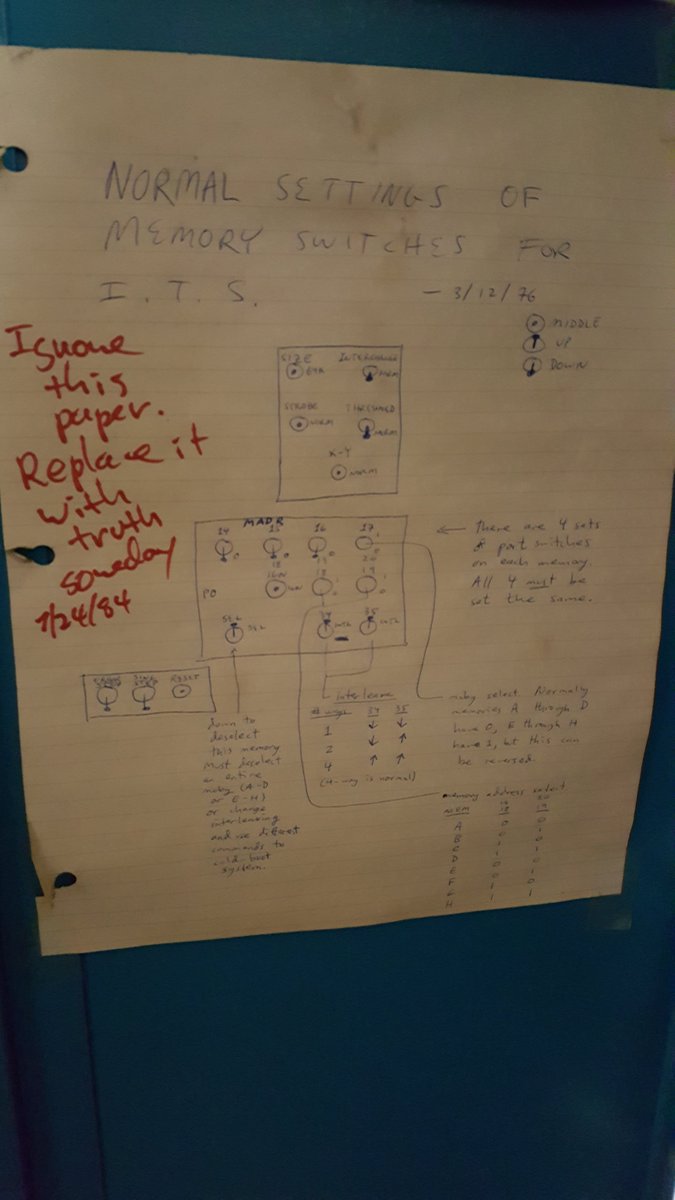 NORMAL SETTINGS OF
MEMORY SWITCHES FOR
I. T. S. — 3/12/76
MIDDLE
UP
DOWN
Ignore
this
paper.
Replace it
with
truth
someday
7/24/84
SIZE
64K
INTERCHANGE
NORM
STROBE
NORM
THRESHOLD
NORM
X-Y
NORM
MADR
14 15 16 17
0 0 0
18 19 20
18 19
PO
34 35
There are 4 sets
of port switches
on each memory.
All 4 must be
set the same.
RESET
down to
deselect
this memory
Must deselect
an entire
moby (A-D
or E-H)
or change
interleaving
and use different
commands to
cold-boot
system.
interleave
# ways 34 35
1 ↓ ↓
2 ↓ ↑
4 ↑ ↑
(4-way is normal)
moby select. Normally
memories A through D
have 0, E through H
have 1, but this can
be reversed.
memory address select
MEM 18 19
A 0 0
B 0 1
C 1 0
D 1 1
E 0 0
F 0 1
G 1 0
H 1 1